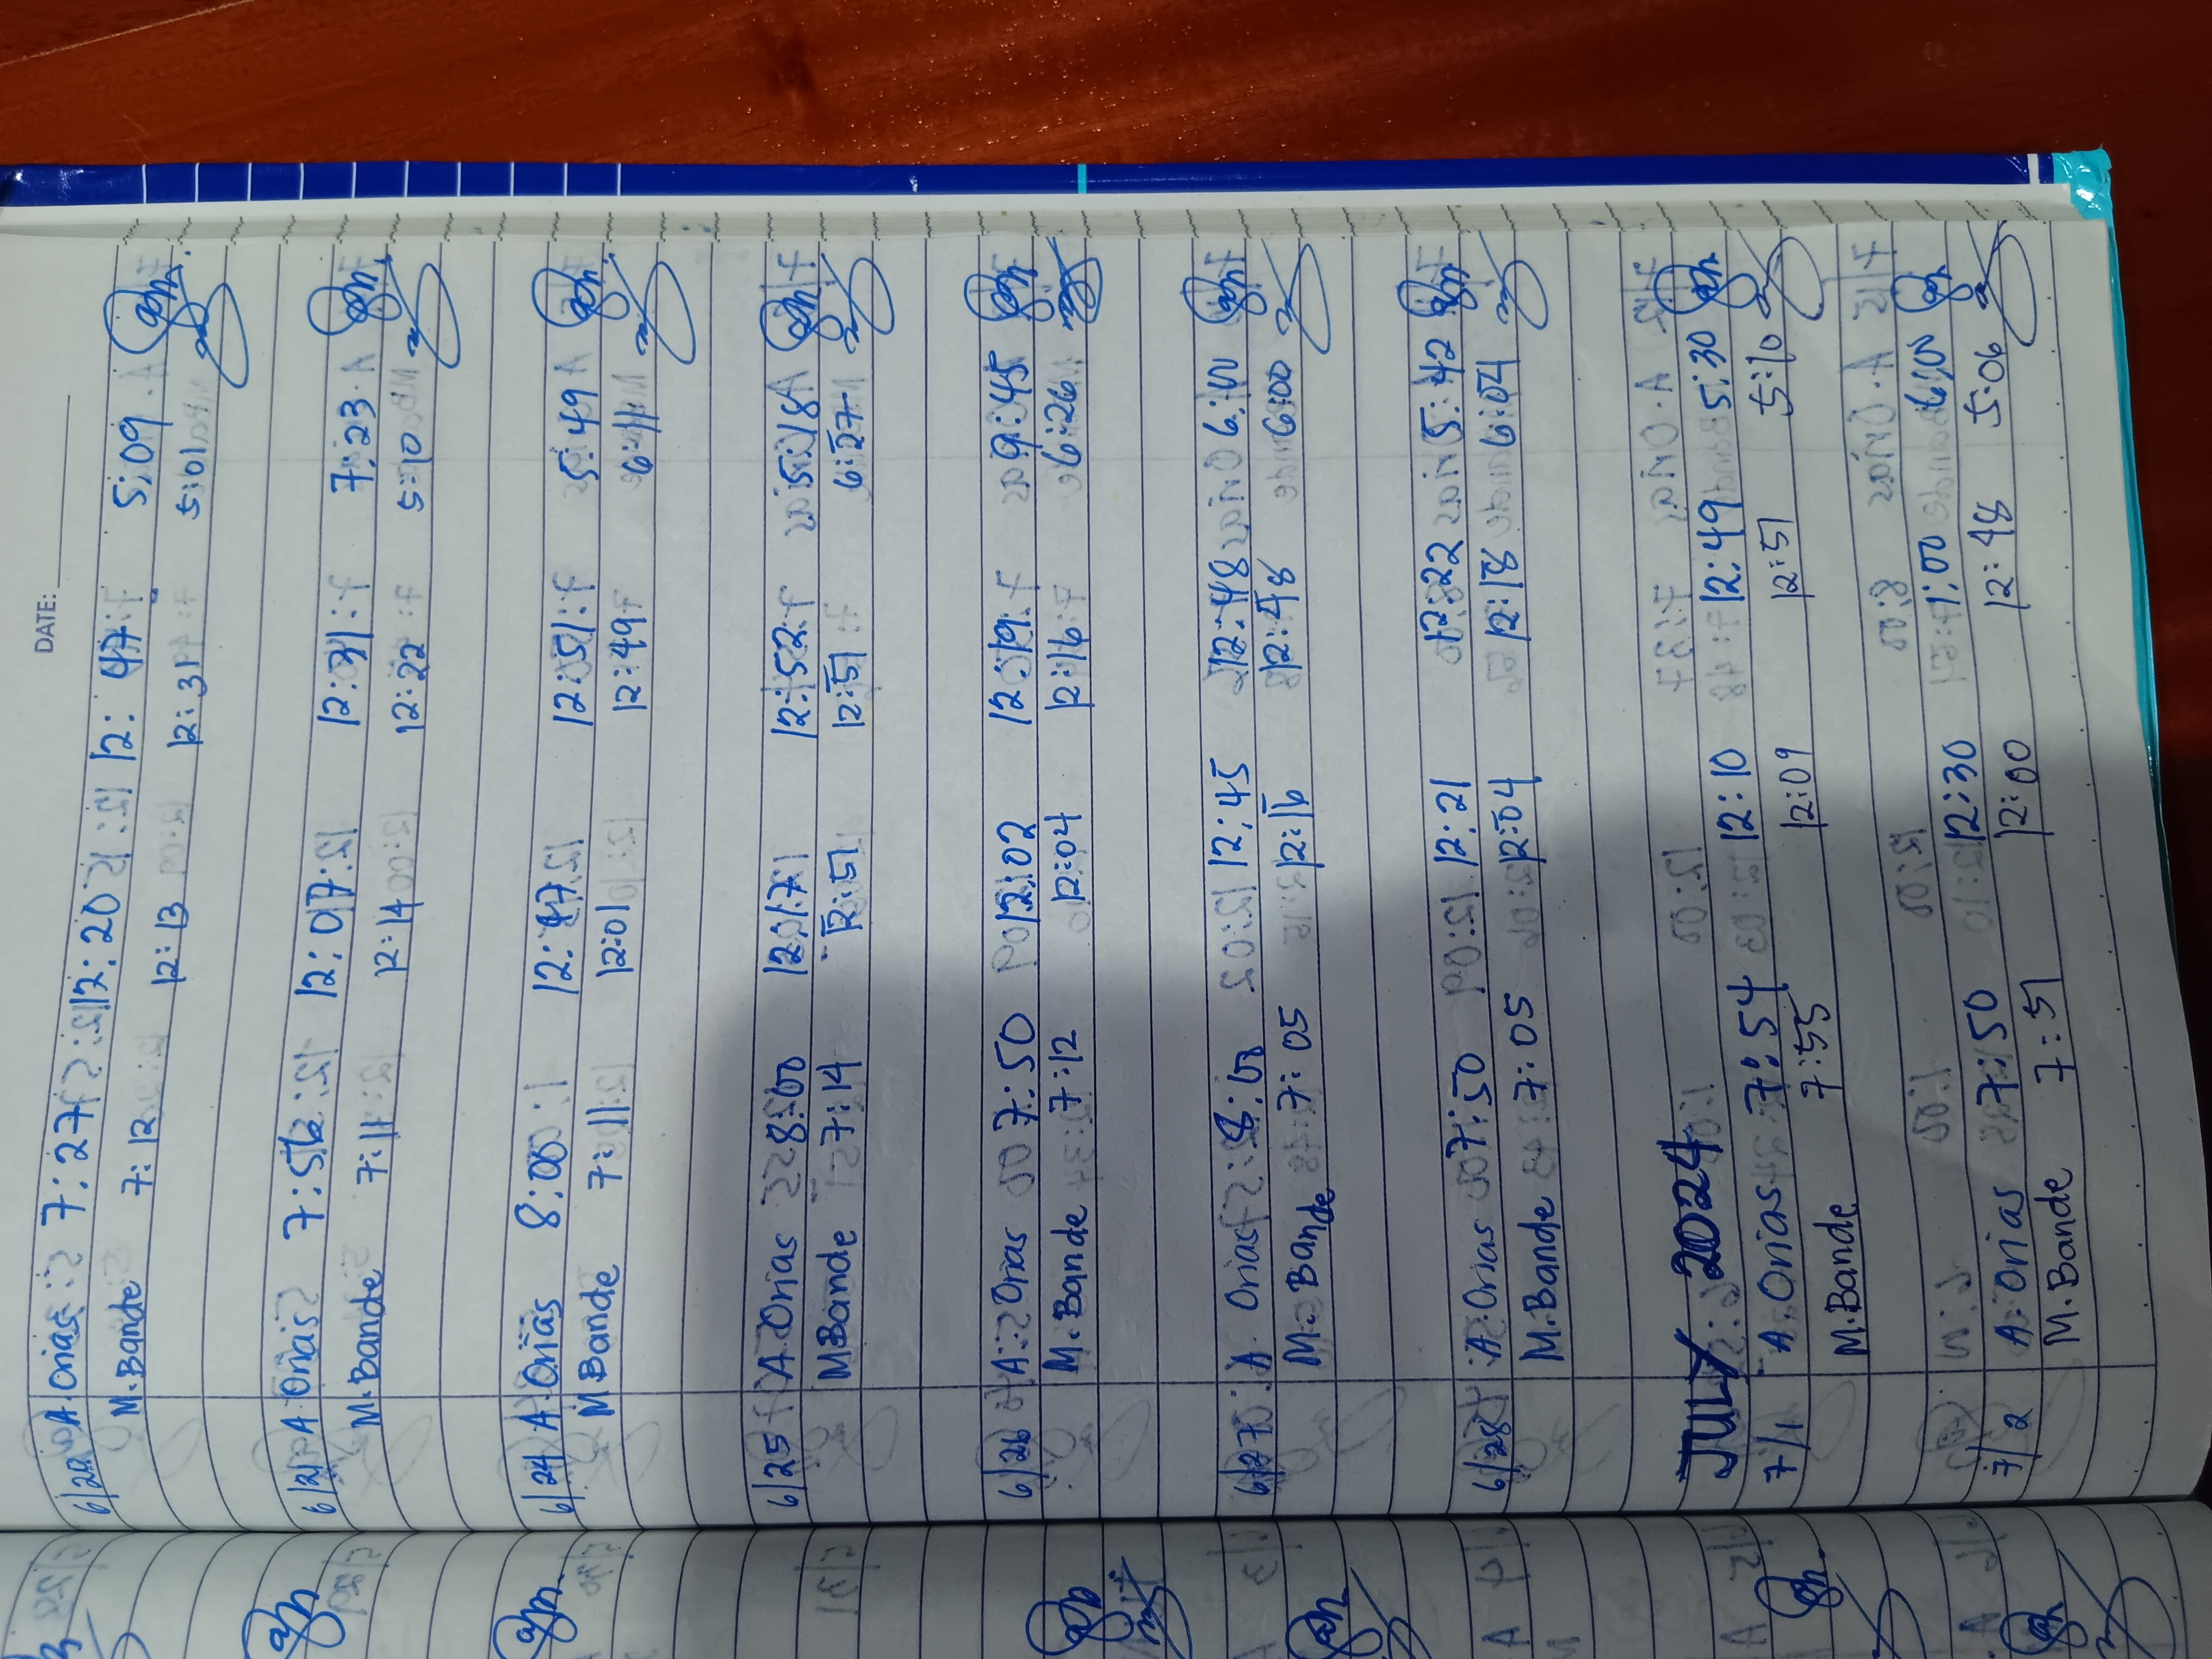 DATE:
6/20 A. Orias 7:27 12:20 12:47 5:09
M. Bande 7:12 12:13 12:31 5:01
6/21 A. Orias 12:07 7:23
M. Bande 7:11 12:14 12:22 5:10
6/24 A. Orias 8:00 12:51 5:49
M Bande 7:11 12:01 12:49 6:11
6/25 A Orias 8:00 12:52 5:18
M Bande 7:14 12:51 12:51 6:27
6/26 A. Orias 7:50 12:02 12:19 9:45
M. Bande 7:12 12:04 12:16 6:26
6/27 A. Orias 8:00 12:45 12:48 6:00
M. Bande 7:05 12:16 12:48 6:00
6/28 A. Orias 7:50 12:21 12:22 5:42
M. Bande 7:05 12:04 12:18 6:04
JULY 2024
7/1 A. Orias 7:54 12:10 12:49 5:30
M. Bande 7:55 12:09 12:51 5:10
7/2 A. Orias 7:50 12:30 1:00 6:00
M. Bande 7:51 12:00 12:48 5:06